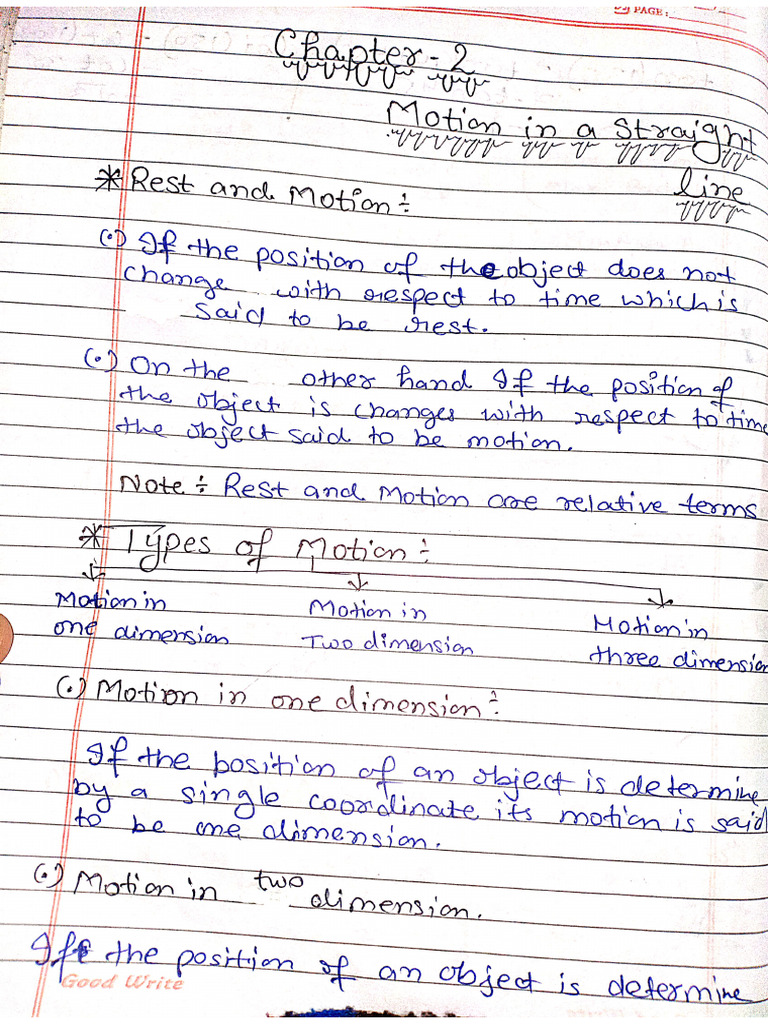 PAGE:
Chapter-2
Motion in a Straight
line
* Rest and Motion÷
(•) If the position of the object does not
change with respect to time which is
said to be rest.
(•) On the other hand If the position of
the object is changes with respect to time
the object said to be motion.
Note÷ Rest and Motion are relative terms
* Types of Motion÷
Motion in Motion in Motion in
one dimension Two dimension three dimension
(•) Motion in one dimension÷
If the position of an object is determine
by a single coordinate its motion is said
to be one dimension.
(•) Motion in two dimension.
If the position of an object is determine
Good Write